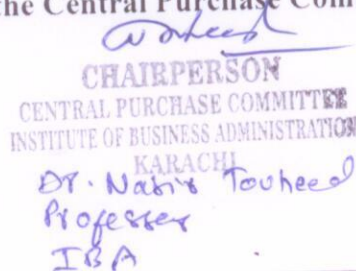 the Central Purchase Com
CHAIRPERSON
CENTRAL PURCHASE COMMITTEE
INSTITUTE OF BUSINESS ADMINISTRATION
KARACHI
Dr. Nasir Touheed
Professor
IBA